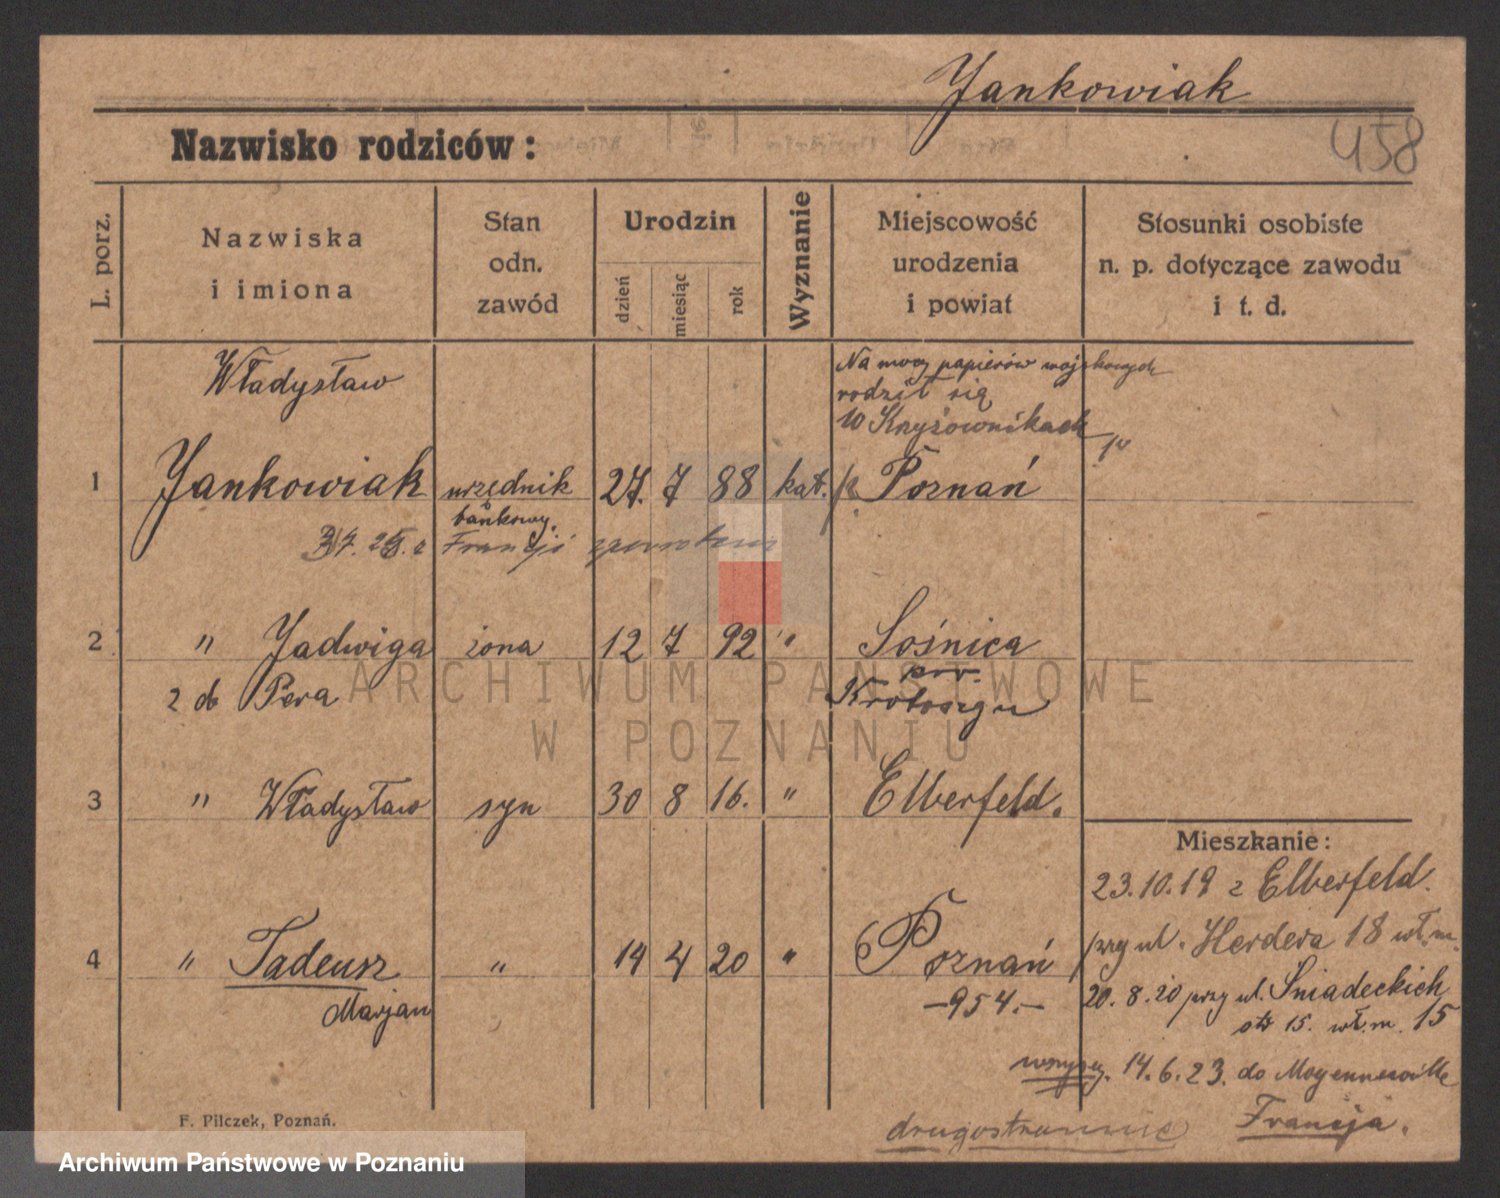 Jankowiak
Nazwisko rodziców:
458
L. porz.
Nazwiska
i imiona
Stan
odn.
zawód
Urodzin
dzień
miesiąc
rok
Wyznanie
Miejscowość
urodzenia
i powiat
Stosunki osobiste
n. p. dotyczące zawodu
i t. d.
Władysław
Na mocy papierów wojskowych
rodził się
w Knyżownikach
1 Jankowiak urzędnik 27. 7 88 kat. Poznań
bankowy.
Francji
2 " Jadwiga żona 12 7 92 " Sośnica
2 do Pera pow.
Krotoszyn
3 " Władysław syn 30 8 16. " Elberfeld.
Mieszkanie:
23.10.19 z Elberfeld.
4 " Tadeusz " 14 4 20 " Poznań
Marjan
-954.-
przy ul. Herdera 18 wł.m.
20. 8. 20 przy ul. Śniadeckich
15. wł.m. 15
wszyscy. 14. 6. 23. do Moyenneville
Francja.
drugostronnie
F. Pilczek, Poznań.
ARCHIWUM PAŃSTWOWE
W POZNANIU
Archiwum Państwowe w Poznaniu